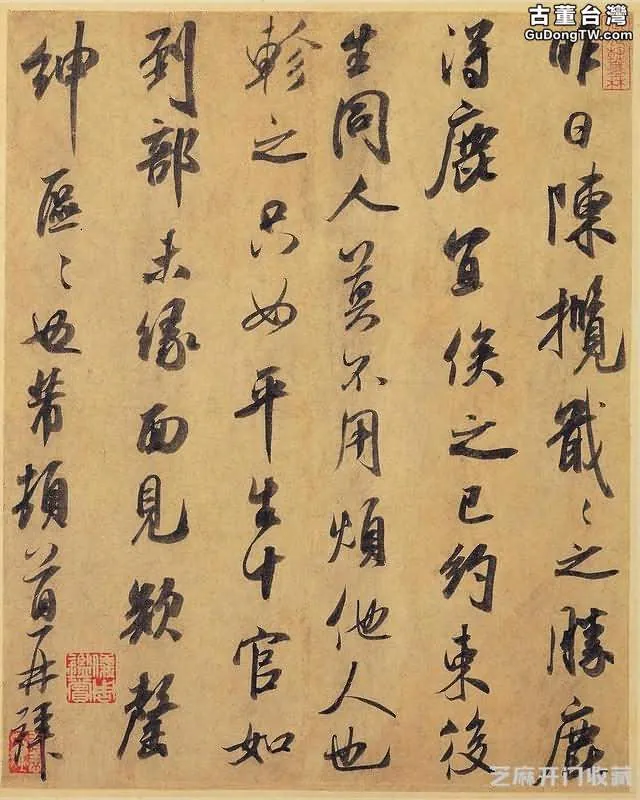 古董台灣
GuDongTW.com
昨日陳攬戢〻之勝鹿
得鹿宜俟之已約束後
生同人莫不用煩他人也
軫之只如平生十官如
到部未緣面見欵罄
紳區〻也芾頓首再拜
芝麻开门收藏